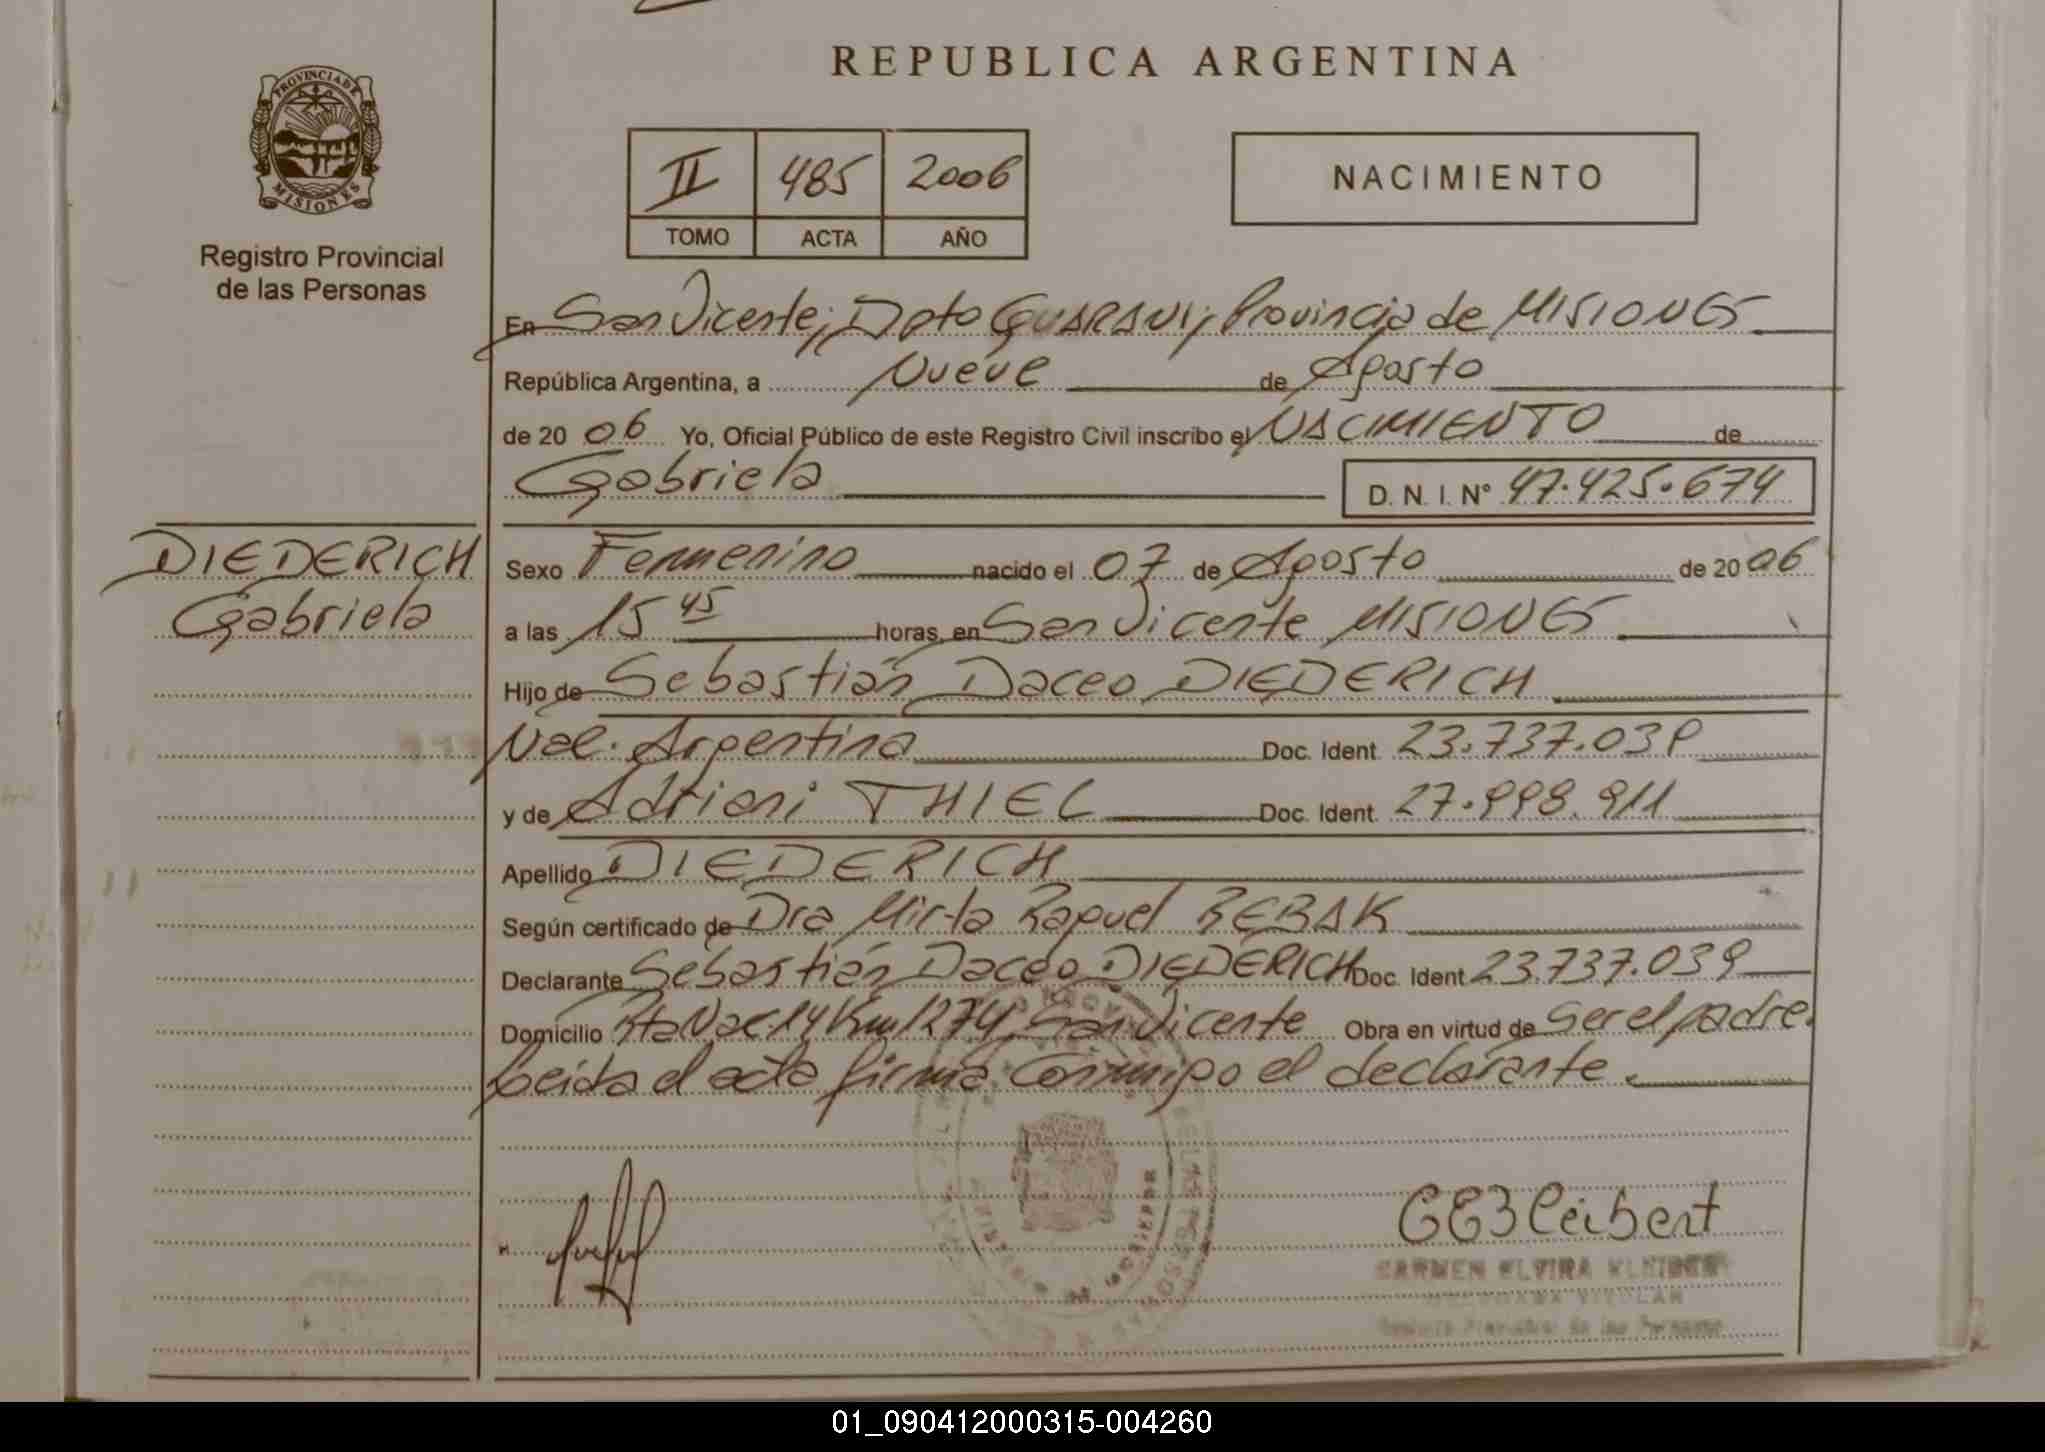 REPUBLICA ARGENTINA
PROVINCIA DE
MISIONES
Registro Provincial
de las Personas
II 485 2006
TOMO ACTA AÑO
NACIMIENTO
En San Vicente; Dpto GUARANI; Provincia de MISIONES
República Argentina, a Nueve de Agosto
de 20 06 Yo, Oficial Público de este Registro Civil inscribo el NACIMIENTO de
Gabriela D. N. I. N° 47.425.674
DIEDERICH
Gabriela
Sexo Femenino nacido el 07 de Agosto de 20 06
a las 15 45 horas, en San Vicente MISIONES
Hijo de Sebastián Daceo DIEDERICH
Nac. Argentina Doc. Ident. 23.737.039
y de Adriani THIEL Doc. Ident. 27.998.911
Apellido DIEDERICH
Según certificado de Dra Mirta Raquel REBAK
Declarante Sebastián Daceo DIEDERICH Doc. Ident 23.737.039
Domicilio Rta Nac 14 Km 1274, San Vicente Obra en virtud de Ser el padre.
Leida el acta firma conmigo el declarante.
CARMEN ELVIRA
01_090412000315-004260